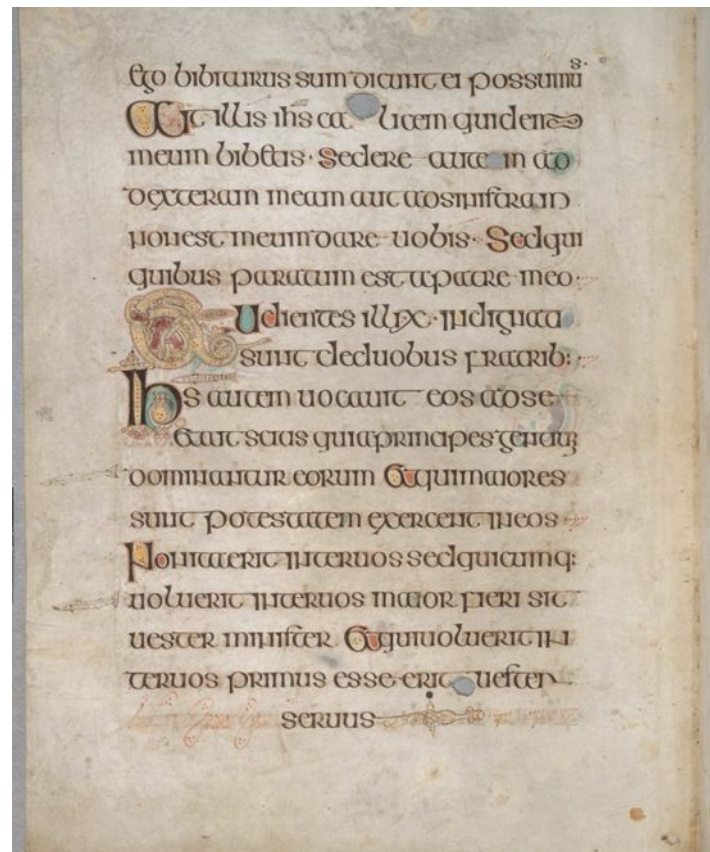 ego bibiturus sum dicunt ei possumus
Ait illis ihs ca licem quidem
meum bibetis · Sedere autem ad
dexteram meam aut adsinistram
nonest meumdare uobis · Sedqui
quibus paratum est apatre meo ·
Audientes illi x · indignati
sunt deduobus fratrib:
Ihs autem uocauit eos adse
etait scitis quiaprincipes gentiu
dominantur eorum Etquimaiores
sunt potestatem exercent ineos
Noniterit interuos sedquicumq:
uoluerit interuos maior fieri sit
uester minister Etquiuoluerit in
teruos primus esse erit uester
seruus